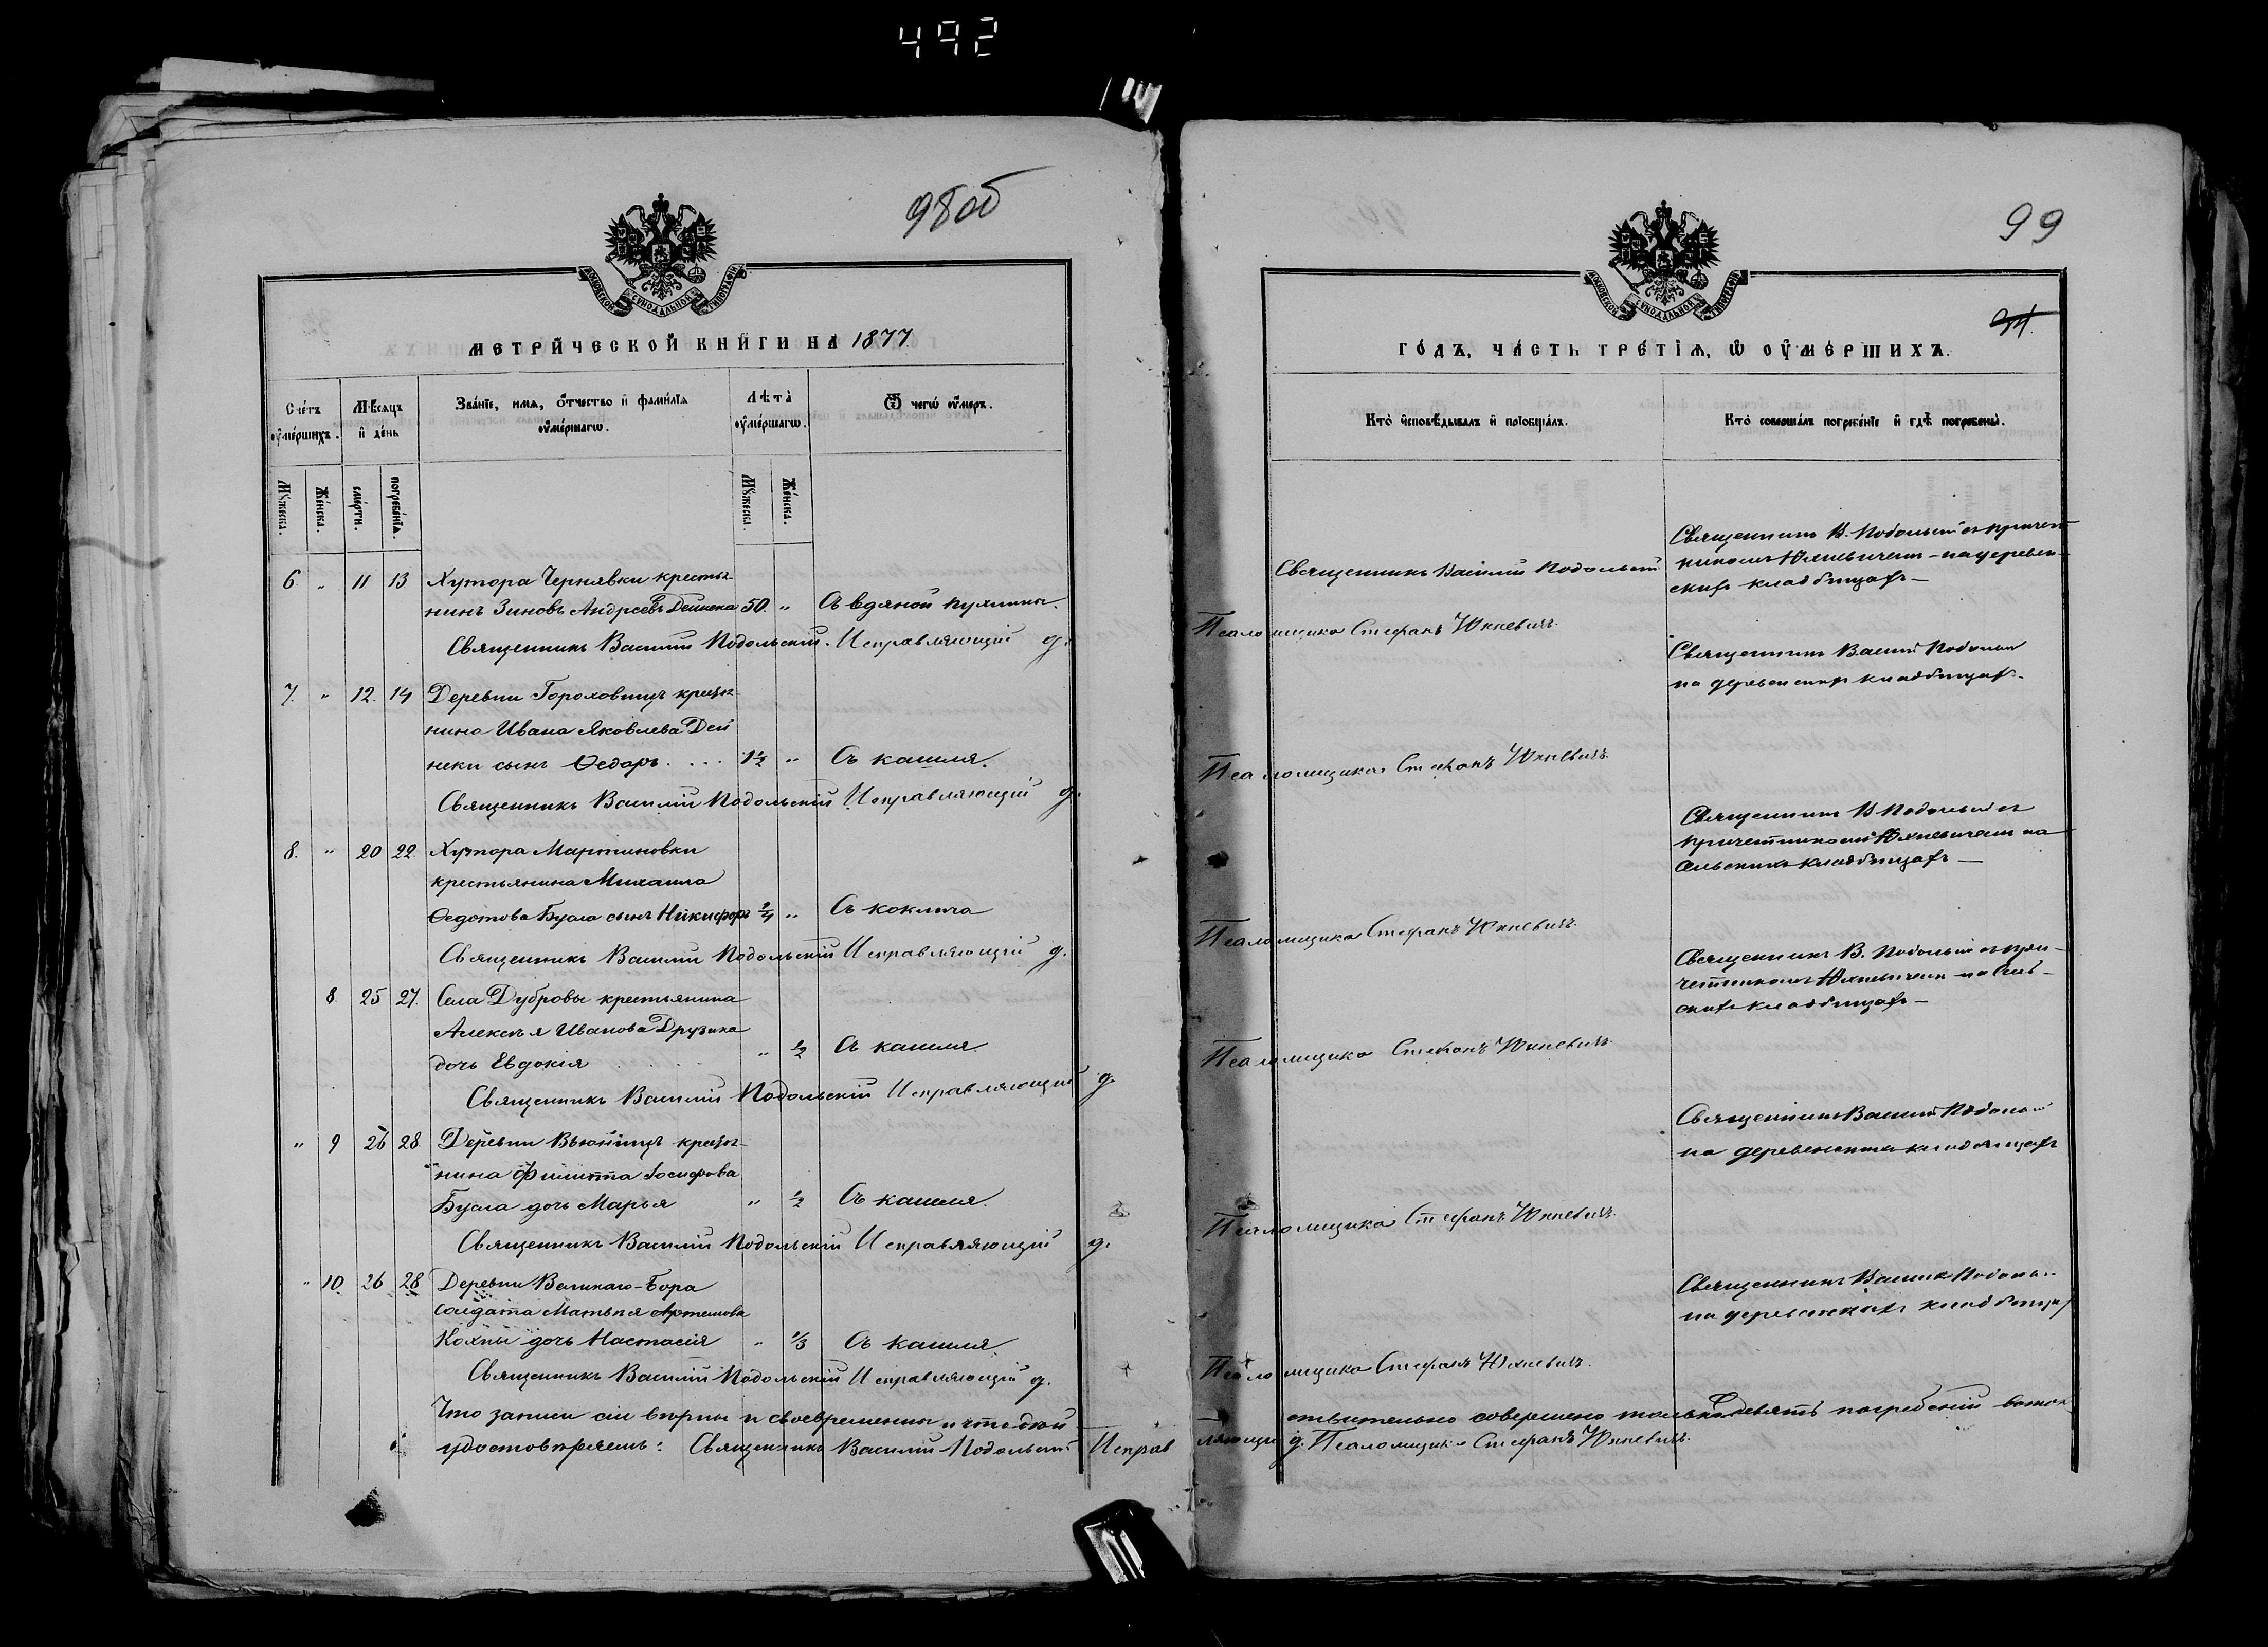 492
98об
МОСКОВСКОЙ СѴНОДАЛЬНОЙ ТИПОГРАФІИ
МЕТРИЧЕСКОЙ КНИГИ НА 1877
Счетъ оумершихъ.
Мѣсяцъ и день
Званіе, имя, отчество и фамилія оумершагѡ.
Лѣта оумершагѡ.
Ѿ чегѡ оумеръ.
Мужеска.
Женска.
смерти.
погребенія.
Мужеска.
Женска.
6 " 11 13 Хутора Чернявки крестья-
нинъ Зиновъ Андреевъ Дейнека 50. " Съ водяной пухлины.
Священникъ Василій Подольскій. Исправляющій д.
7. " 12. 14 Деревни Гороховищъ кресть-
нина Ивана Яковлева Дей
неки сынъ Ѳедоръ.... 1½ " Съ кашля.
Священникъ Василій Подольскій Исправляющій д.
8. " 20 22 Хутора Мартиновки
крестьянина Михаила
Ѳедотова Бусла сынъ Никифоръ " Съ коклюша
Священникъ Василій Подольскій Исправляющій д.
8 25 27. Села Дубровы крестьянина
Алексѣя Иванова Друзика
дочь Евдокія " ½ Съ кашля.
Священникъ Василій Подольскій Исправляющій д.
" 9 26 28 Деревни Вьюнищъ кресть-
нина Филиппа Іосифова
Бусла дочь Марья " ½ Съ кашля.
Священникъ Василій Подольскій Исправляющій д.
" 10. 26 28 Деревни Великаго-Бора
солдата Матвѣя Артемова
Кохны дочь Настасія " ⅓ Съ кашля.
Священникъ Василій Подольскій Исправляющій д.
Что записи сіи вѣрны и своевременны и что дѣй
удостовѣряемъ: Священникъ Василій Подольскій Исправ
99
34.
МОСКОВСКОЙ СѴНОДАЛЬНОЙ ТИПОГРАФІИ
ГОДЪ, ЧАСТЬ ТРЕТІЯ, Ѡ ОУМЕРШИХЪ.
Кто исповѣдывалъ и пріобщалъ.
Кто совершалъ погребеніе и гдѣ погребены.
Священникъ Василій Подольскій
Священникъ В. Подольскій съ причет
никомъ Юхневичемъ - на деревен-
скихъ кладбищахъ -
Псаломщика Стефанъ Юхневичъ.
Священникъ Василій Подольск
на деревенскихъ кладбищахъ.
Псаломщика Стефанъ Юхневичъ.
Священникъ В Подольскій съ
причетникомъ Юхневичемъ на
сельскихъ кладбищахъ -
Псаломщика Стефанъ Юхневичъ.
Священникъ В. Подольскій съ при-
четникомъ Юхневичемъ на сель-
скихъ кладбищахъ -
Псаломщика Стефанъ Юхневичъ.
Священникъ Василій Подольскій
на деревенскихъ кладбищахъ
Псаломщика Стефанъ Юхневичъ.
Священникъ Василій Подоль..
на деревенскихъ кладбищах
Псаломщика Стефанъ Юхневичъ.
ствительно совершено только девять погребеній
ляющій д. Псаломщика Стефанъ Юхневичъ.